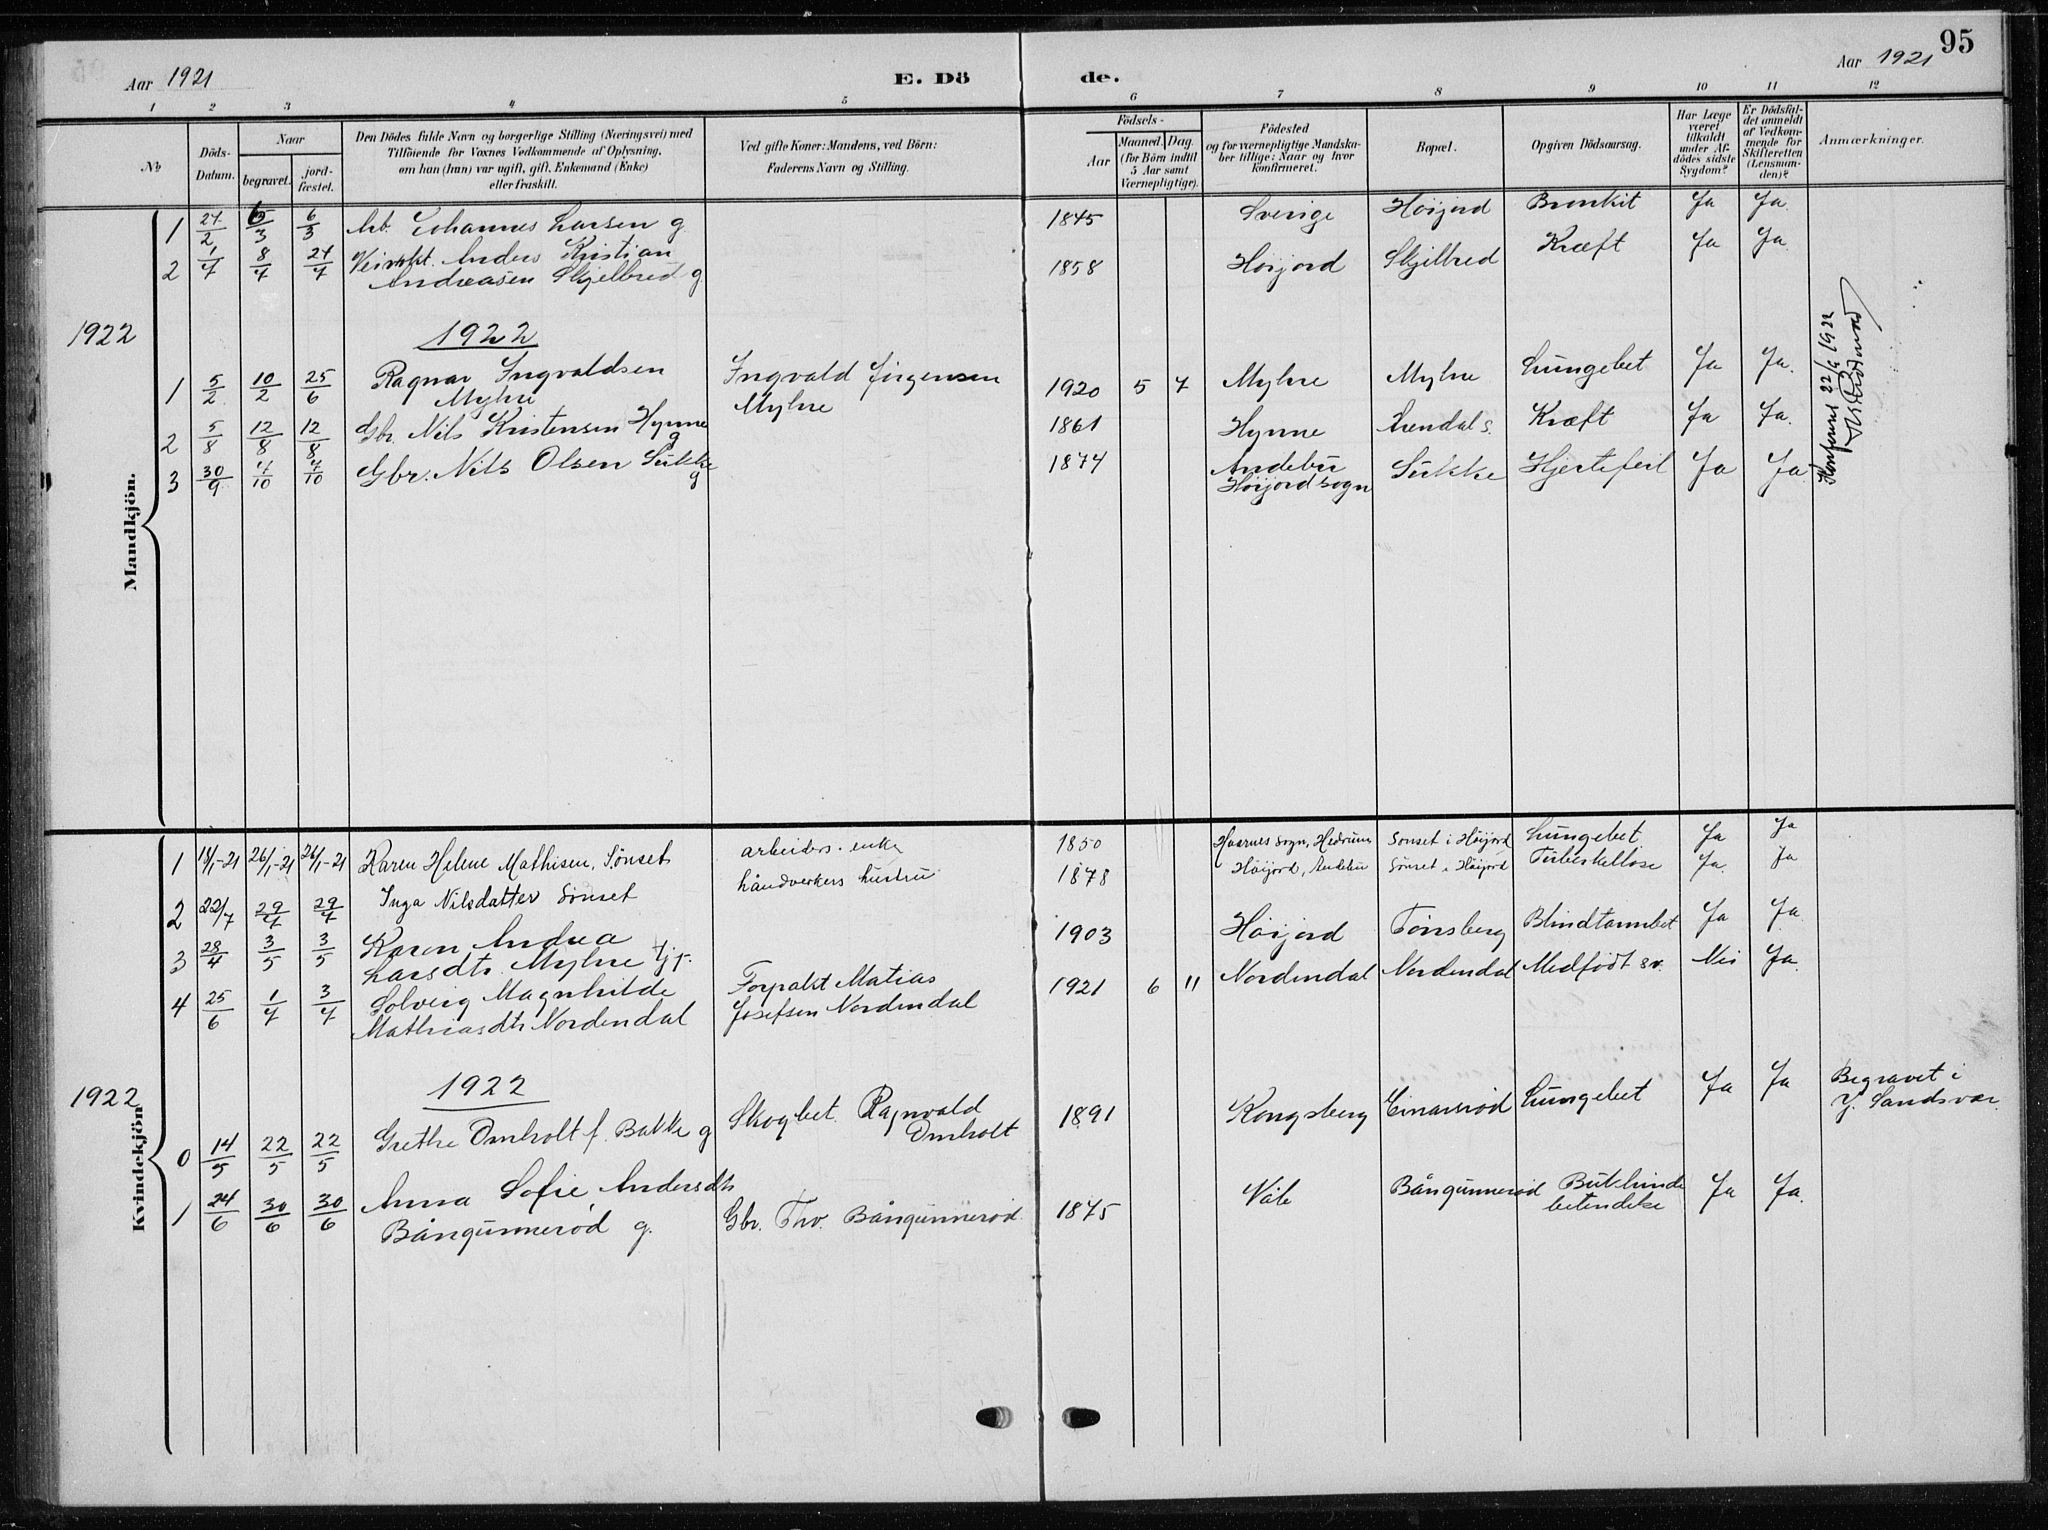 95
Aar 1921
E. Dö de.
Aar 1921
1 2 3 4 5 6 7 8 9 10 11 12
No
Döds-Datum.
Naar
begravet.
jord-fæstet.
Den Dödes fulde Navn og borgerlige Stilling (Næringsvei) med
Tilföiende for Voxnes Vedkommende af Oplysning,
om han (hun) var ugift, gift, Enkemand (Enke)
eller fraskilt.
Ved gifte Koner: Mandens, ved Börn:
Faderens Navn og Stilling.
Födsels-
Aar
Maaned. Dag.
(for Börn indtil
5 Aar samt
Værnepligtige).
Födested
og for værnepligtige Mandska-
ber tillige: Naar og hvor
konfirmeret.
Bopæl.
Opgiven Dödsaarsag.
Har Læge
været
tilkaldt
under Af-
dödes sidste
Sygdom?
Er Dödsfal-
det anmeldt
af Vedkom-
mende for
Skifteretten
(Lensman-
den)?
Anmærkninger.
Mandkjön.
1 27/2 6/3 6/3 Arb. Johannes Larsen g. 1845 Sverige Höijord Bronkit Ja Ja.
2 1/4 8/4 24/4 Veivokt. Anders Kristian
Andreasen Skjelbred g. 1858 Höijord Skjelbred Kræft Ja Ja
1922
1922
1 5/2 10/2 25/6 Ragnar Ingvaldsen
Myhre Ingvald Jörgensen
Myhre 1920 5 7 Myhre Myhre Lungebet Ja Ja.
2 5/8 12/8 12/8 Gbr. Nils Kristensen Hynne
g 1861 Hynne Arendal s. Kræft Ja Ja.
3 30/9 4/10 4/10 Gbr. Nils Olsen Sukke
g 1874 Andebu
Höijord sogn Sukke Hjertefeil Ja Ja.
Konfereret 22/9 1922
Kvindekjön
1 18/1-21 26/1-21 26/1-21 Karen Helene Mathisen, Sønset arbeiders enke 1850 Haarnes sogn, Hedrum Sonset i Höijord Lungebet Ja Ja
2 22/7 29/4 29/4 Inga Nilsdatter Sonset håndverkers hustru 1878 Höijord, Andebu Sønset i Höijord Tuberkellöse Ja. Ja
3 28/4 3/5 3/5 Karen Andrea
Larsdtr. Myhre tj p. 1903 Höijord Tönsberg Blindtarmbet Ja Ja.
4 25/6 1/7 3/7 Solveig Magnhilde
Mathiasdtr Nordendal Forpakt Matias
Josefsen Nordendal 1921 6 11 Nordendal Nordendal Medfödt sv. Nei Ja.
1922
1922
0 14/5 22/5 22/5 Grethe Omholt f. Bakke g Skogbet. Ragnvald
Omholt 1891 Kongsberg Einarsrød Lungebet Ja Ja Begravet i
Y. Sandsvær.
1 24/6 30/6 30/6 Anna Sofie Andersdtr
Bångunnerød g. Gbr. Thv. Bångunnerød 1875 Våle Bångunnerød Bukhinde
betendelse Ja Ja.